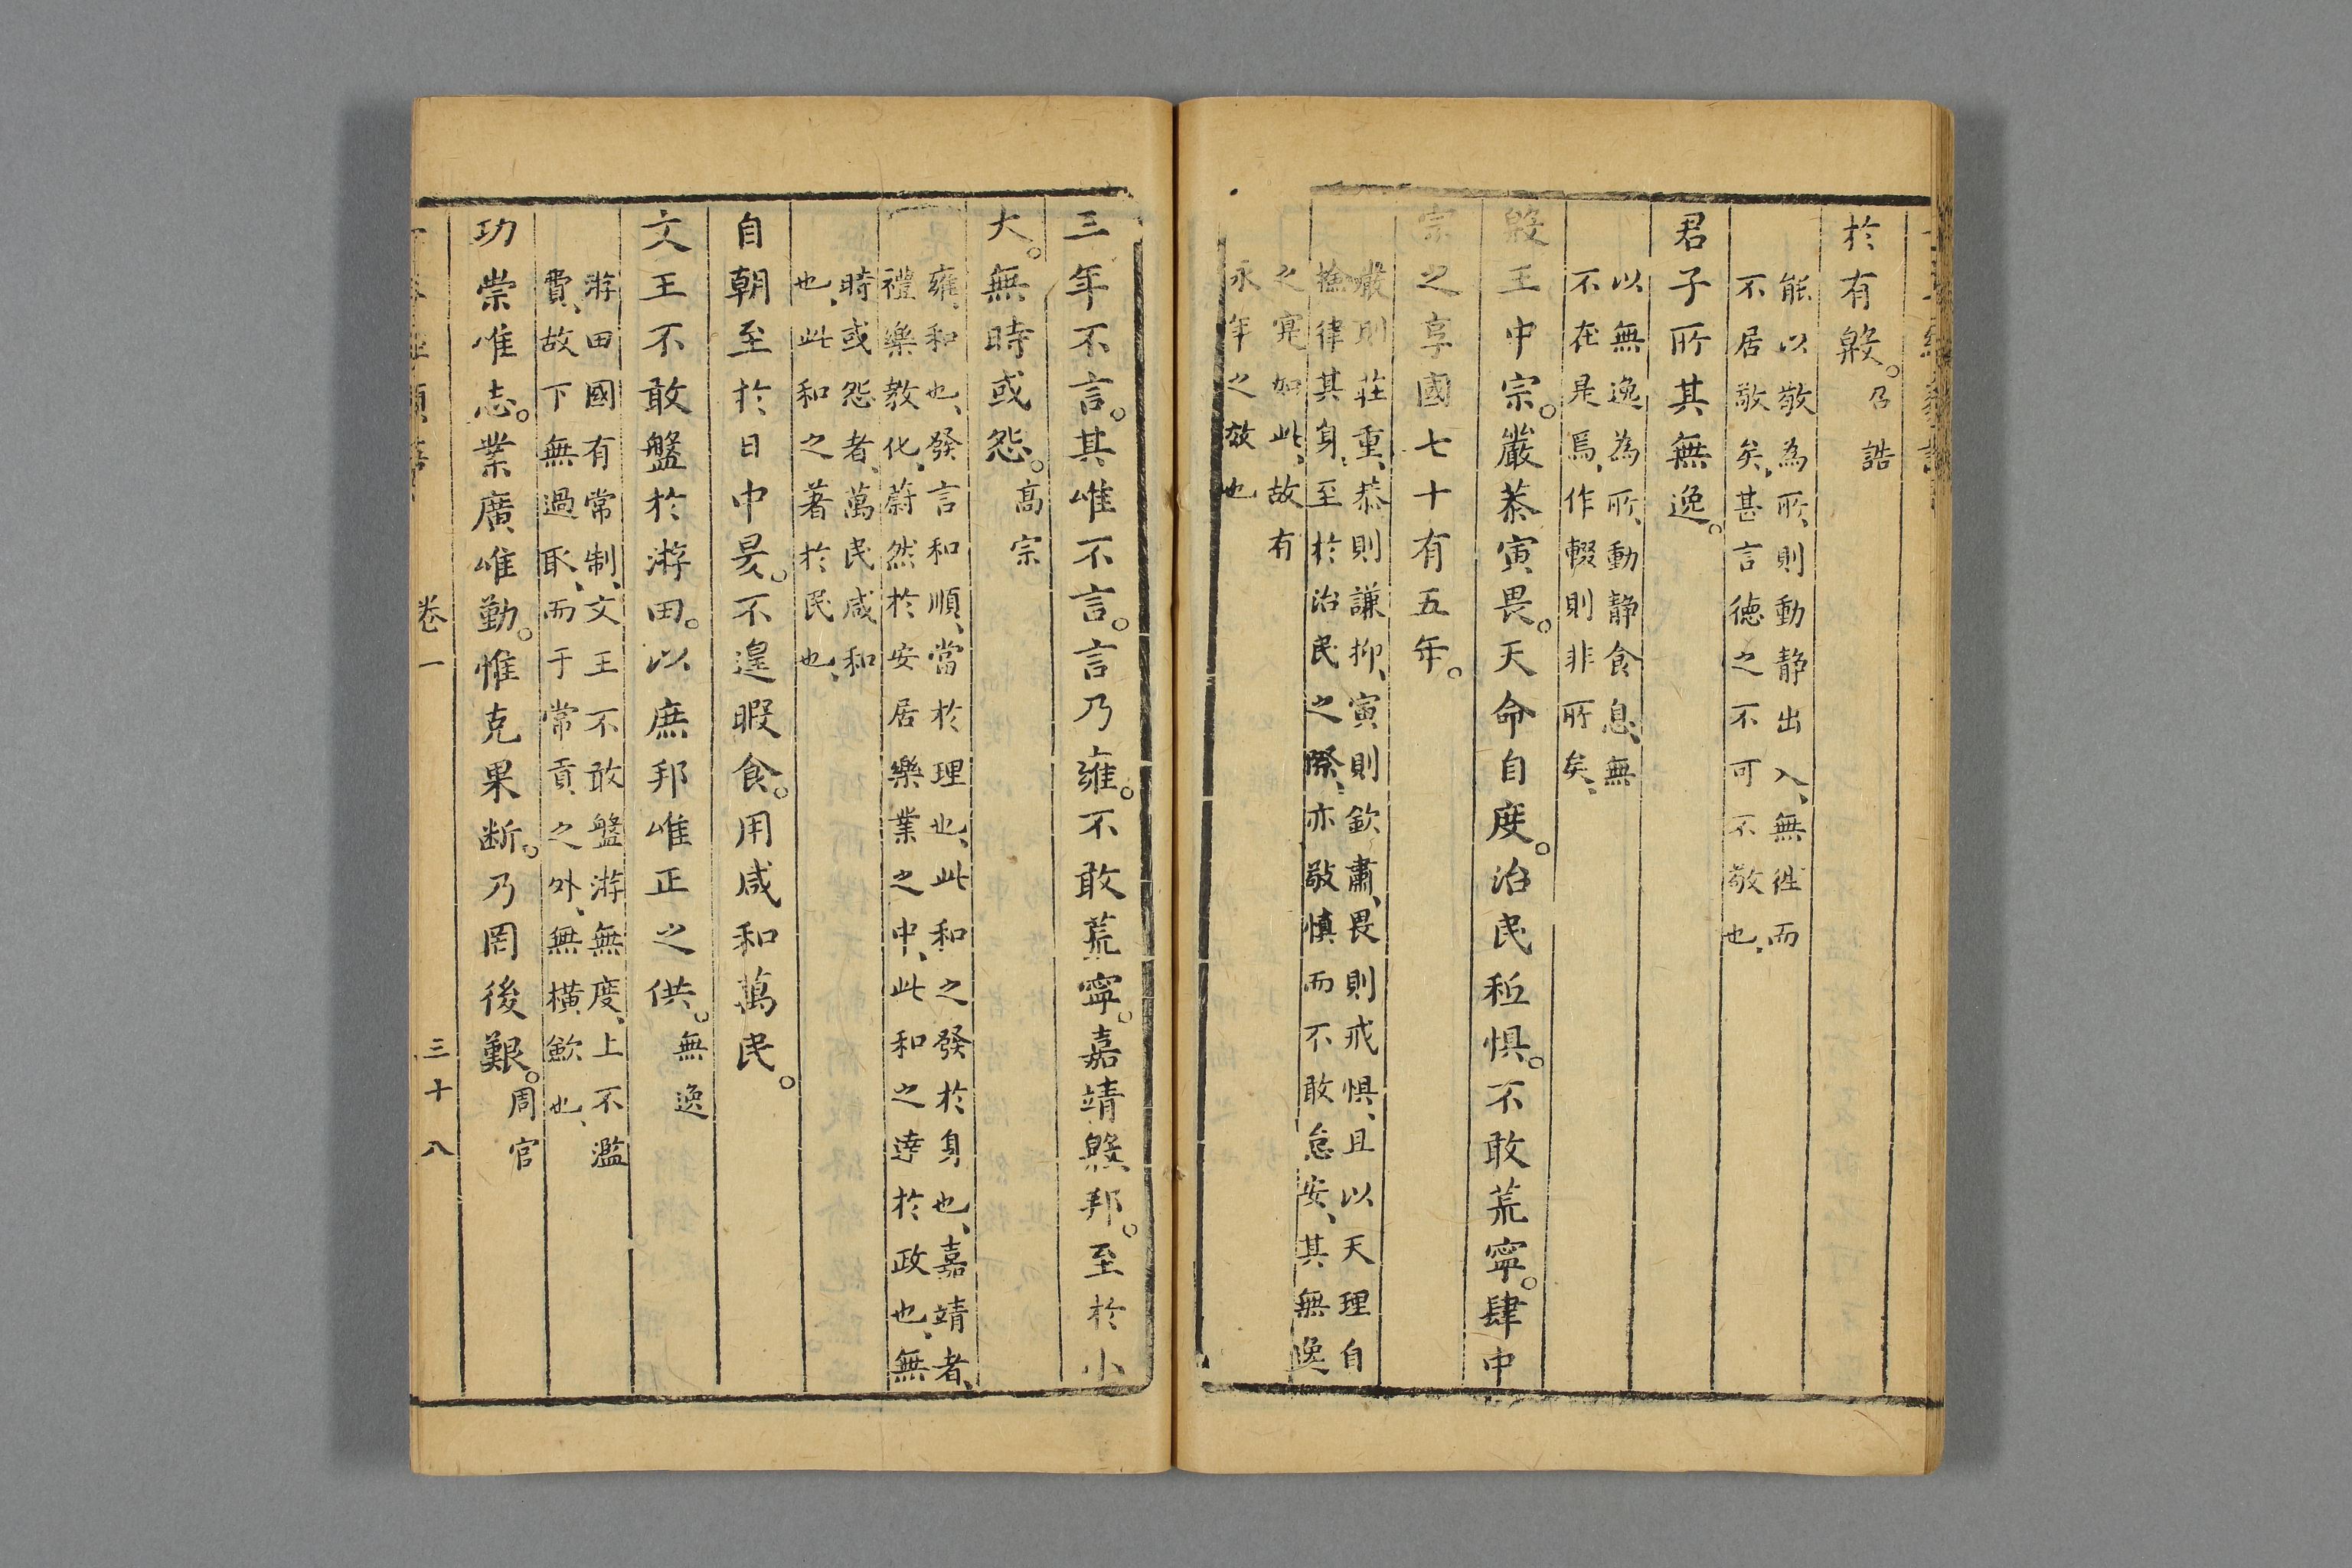 於有殷。召誥
能以敬為所、則動靜出入、無往而
不居敬矣、甚言德之不可不敬也、
君子所其無逸。
以無逸為所、動靜食息、無
不在是焉、作輟則非所矣、
殷王中宗。嚴恭寅畏。天命自度。治民秪惧。不敢荒寧。肆中
宗之享國七十有五年。
嚴則莊重、恭則謙抑、寅則欽肅、畏則戒惧、且以天理自
撿律其身、至於治民之際、亦敬慎而不敢怠安、其無逸
之寔如此、故有
永年之效也
三年不言。其唯不言。言乃雍。不敢荒寧。嘉靖殷邦。至於小
大。無時或怨。高宗
雍、和也、發言和順、當於理也、此和之發於身也、嘉靖者、
禮樂教化、蔚然於安居樂業之中、此和之達於政也、無
時或怨者、萬民咸和
也、此和之著於民也、
自朝至於日中昃。不遑暇食。用咸和萬民。
文王不敢盤於游田。以庶邦唯正之供。無逸
游田國有常制、文王不敢盤游無度、上不濫
費、故下無過取、而于常貢之外、無橫歛也、
功崇唯志。業廣唯勤。惟克果断。乃罔後艱。周官
卷一 三十八